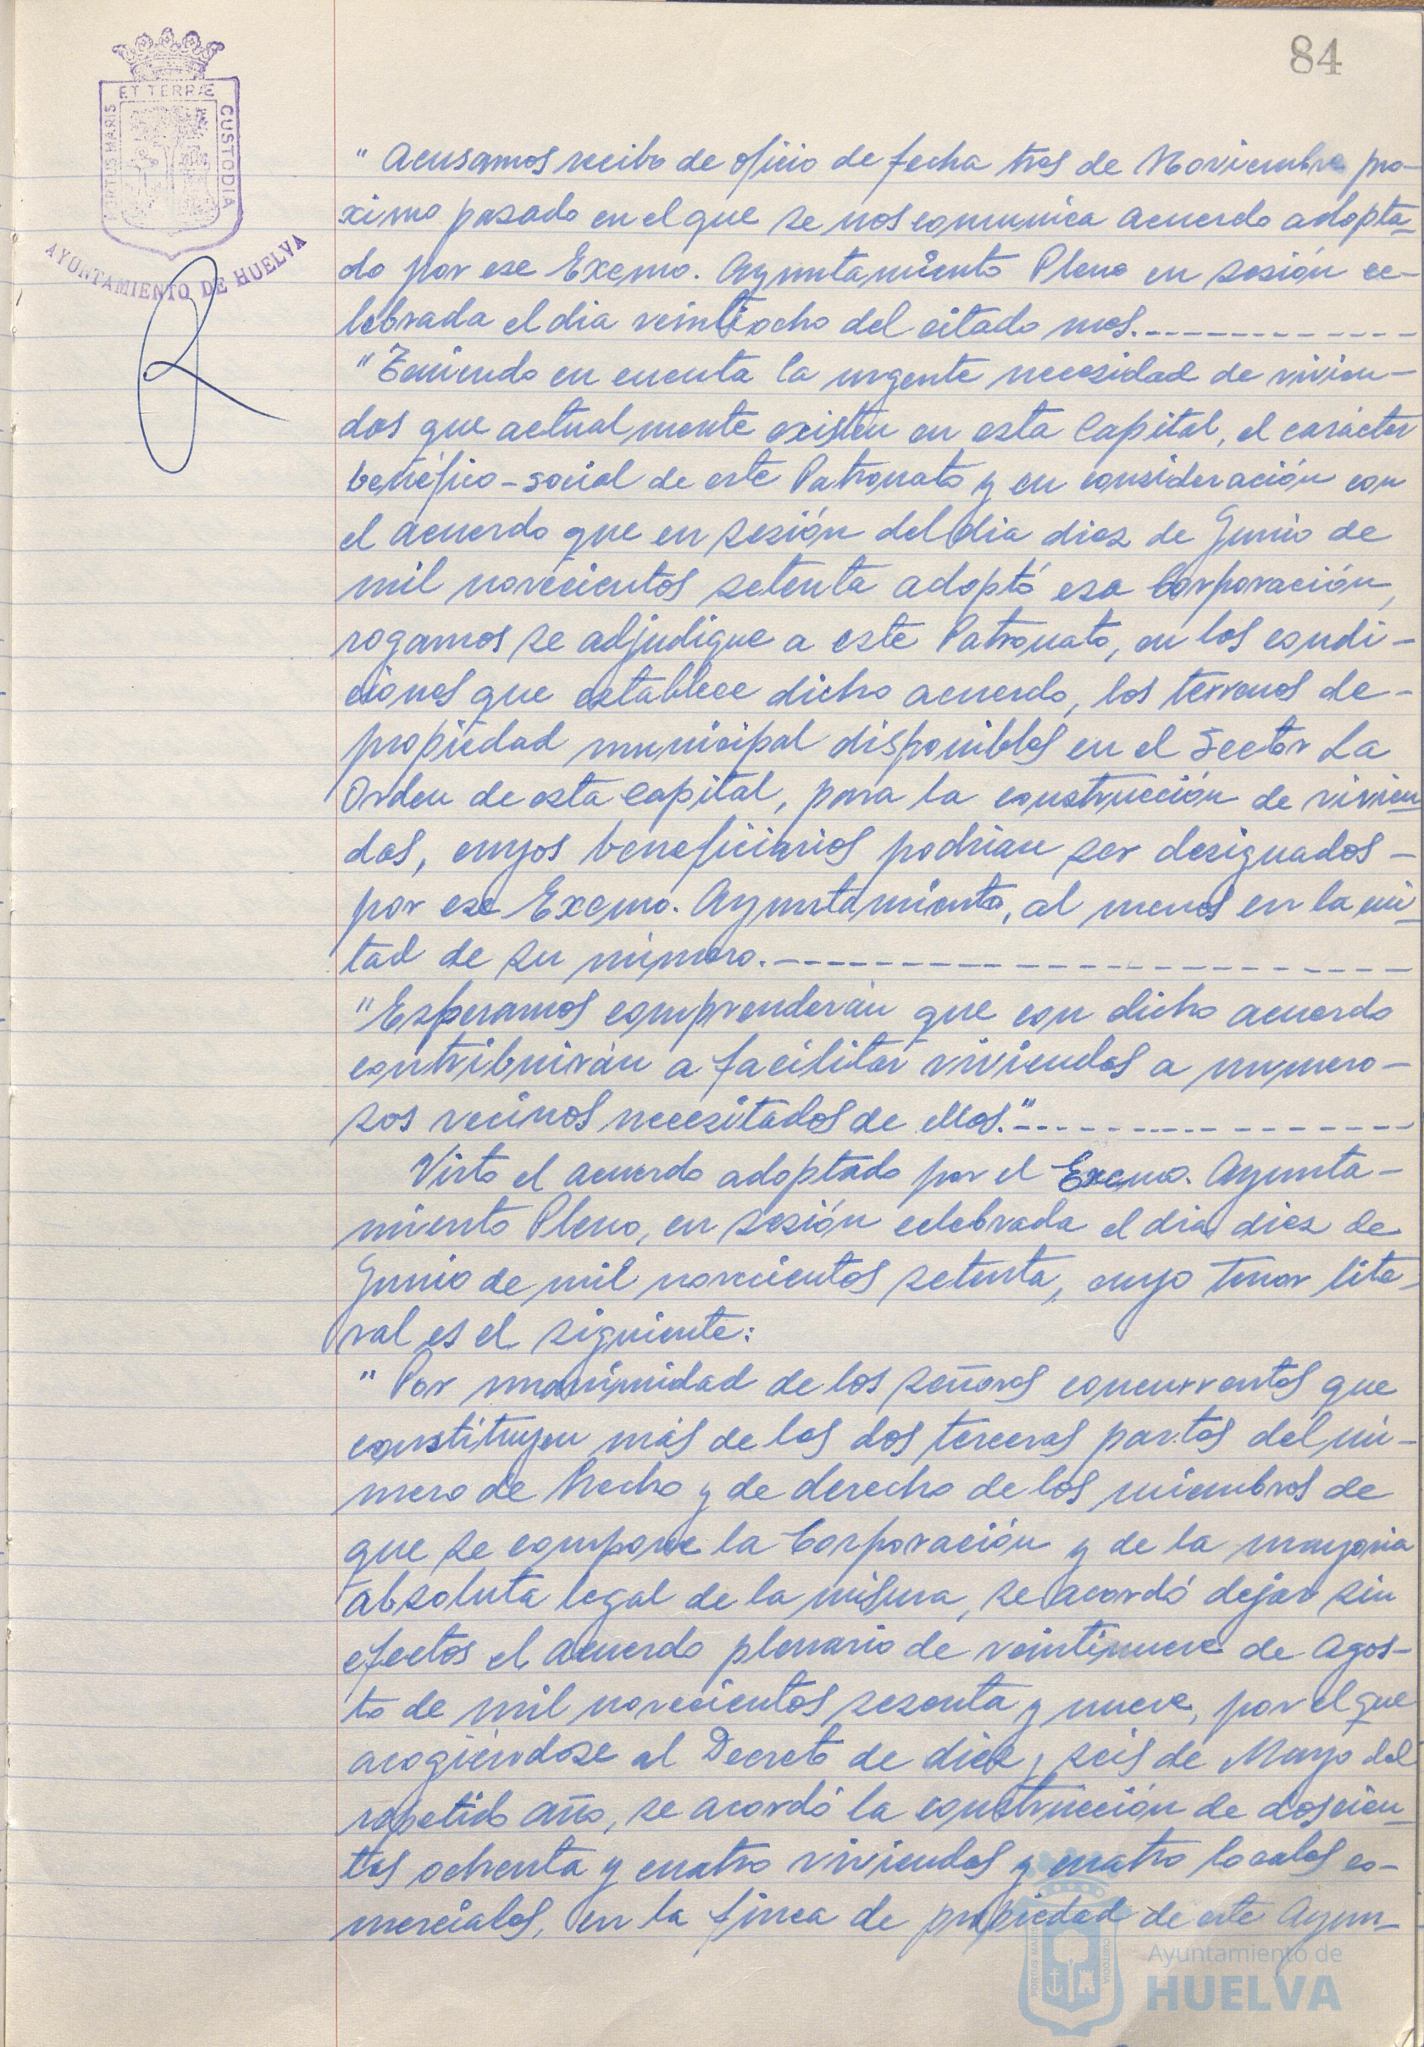 84
ET TERRÆ
PORTUS MARIS
CUSTODIA
AYUNTAMIENTO DE HUELVA
" Acusamos recibo de oficio de fecha tres de Noviembre pro-
ximo pasado en el que se nos comunica acuerdo adopta-
do por ese Excmo. Ayuntamiento Pleno en sesión ce-
lebrada el dia veintiocho del citado mes.------------
"Teniendo en cuenta la urgente necesidad de vivien-
das que actualmente existen en esta Capital, el carácter
benéfico-social de este Patronato y en consideración con
el acuerdo que en sesión del dia diez de Junio de
mil novecientos setenta adoptó esa Corporación,
rogamos se adjudique a este Patronato, en las condi-
ciones que establece dicho acuerdo, los terrenos de-
propiedad municipal disponibles en el Sector La
Orden de esta capital, para la construcción de vivien-
das, cuyos beneficiarios podrian ser designados-
por ese Excmo. Ayuntamiento, al menos en la mi-
tad de su número.--------------------
"Esperamos comprenderán que con dicho acuerdo
contribuirán a facilitar viviendas a numero-
sos vecinos necesitados de ellas."----------------
Visto el acuerdo adoptado por el Excmo. Ayunta-
miento Pleno, en sesión celebrada el dia diez de
Junio de mil novecientos setenta, cuyo tenor lite-
ral es el siguiente:
" Por unanimidad de los señores concurrentes que
constituyen más de las dos terceras partes del nú-
mero de hecho y de derecho de los miembros de
que se compone la Corporación y de la mayoria
absoluta legal de la misma, se acordó dejar sin
efectos el acuerdo plenario de veintinueve de Agos-
to de mil novecientos sesenta y nueve, por el que
acogiéndose al Decreto de diez y seis de Mayo del
repetido año, se acordó la construcción de doscien-
tas ochenta y cuatro viviendas y cuatro locales co-
merciales, en la finca de propiedad de este Ayun-
Ayuntamiento de
HUELVA